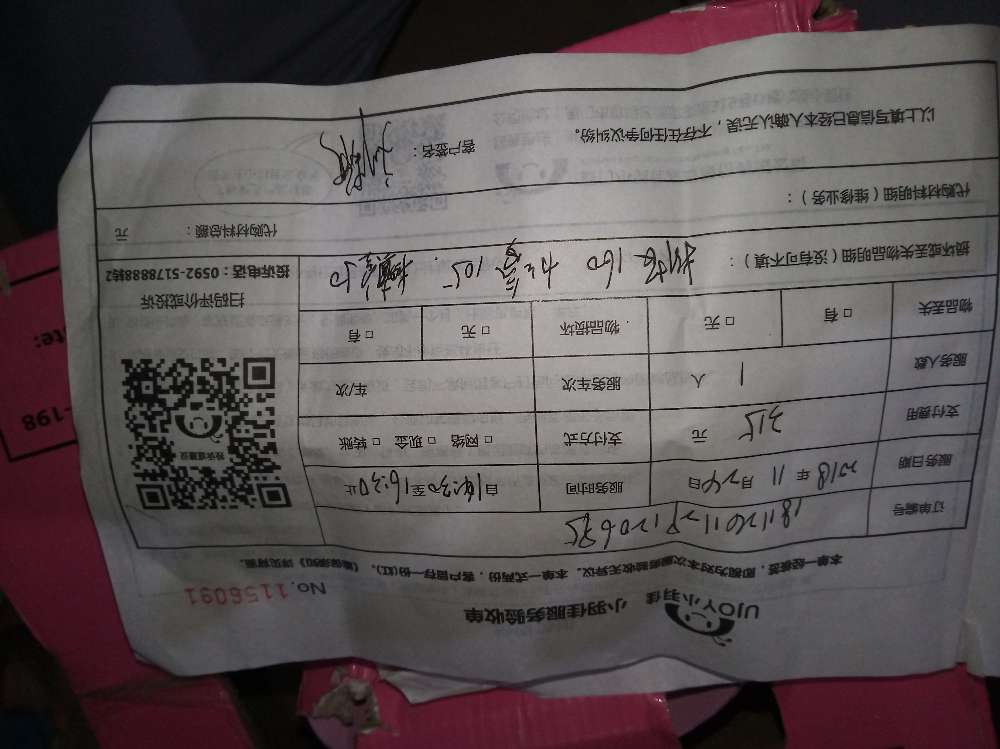 UJOY小羽佳
小羽佳服务验收单
No.1156091
本单一经核签,即视为对本次服务验收无异议。本单一式两份,客户留存一份(红)。《维保须知》详见背面。
订单编号
服务日期 2018 年 11 月 24 日 服务时间 自 14:30 至 16:30 止
支付费用 315 元 支付方式 □ 网络 □ 现金 □ 转账
服务人数 1 人 服务车次 车/次
物品丢失 □ 有 □ 无 物品损坏 □ 无 □ 有
扫码评价或投诉
投诉电话:0592-5178888转2
损坏或丢失物品明细(没有可不填): 160 105 50
代购材料明细(维修业务):
代购材料总额: 元
以上填写信息已经本人确认无误,不存在任何争议纠纷。
客户签名:
-198
te: